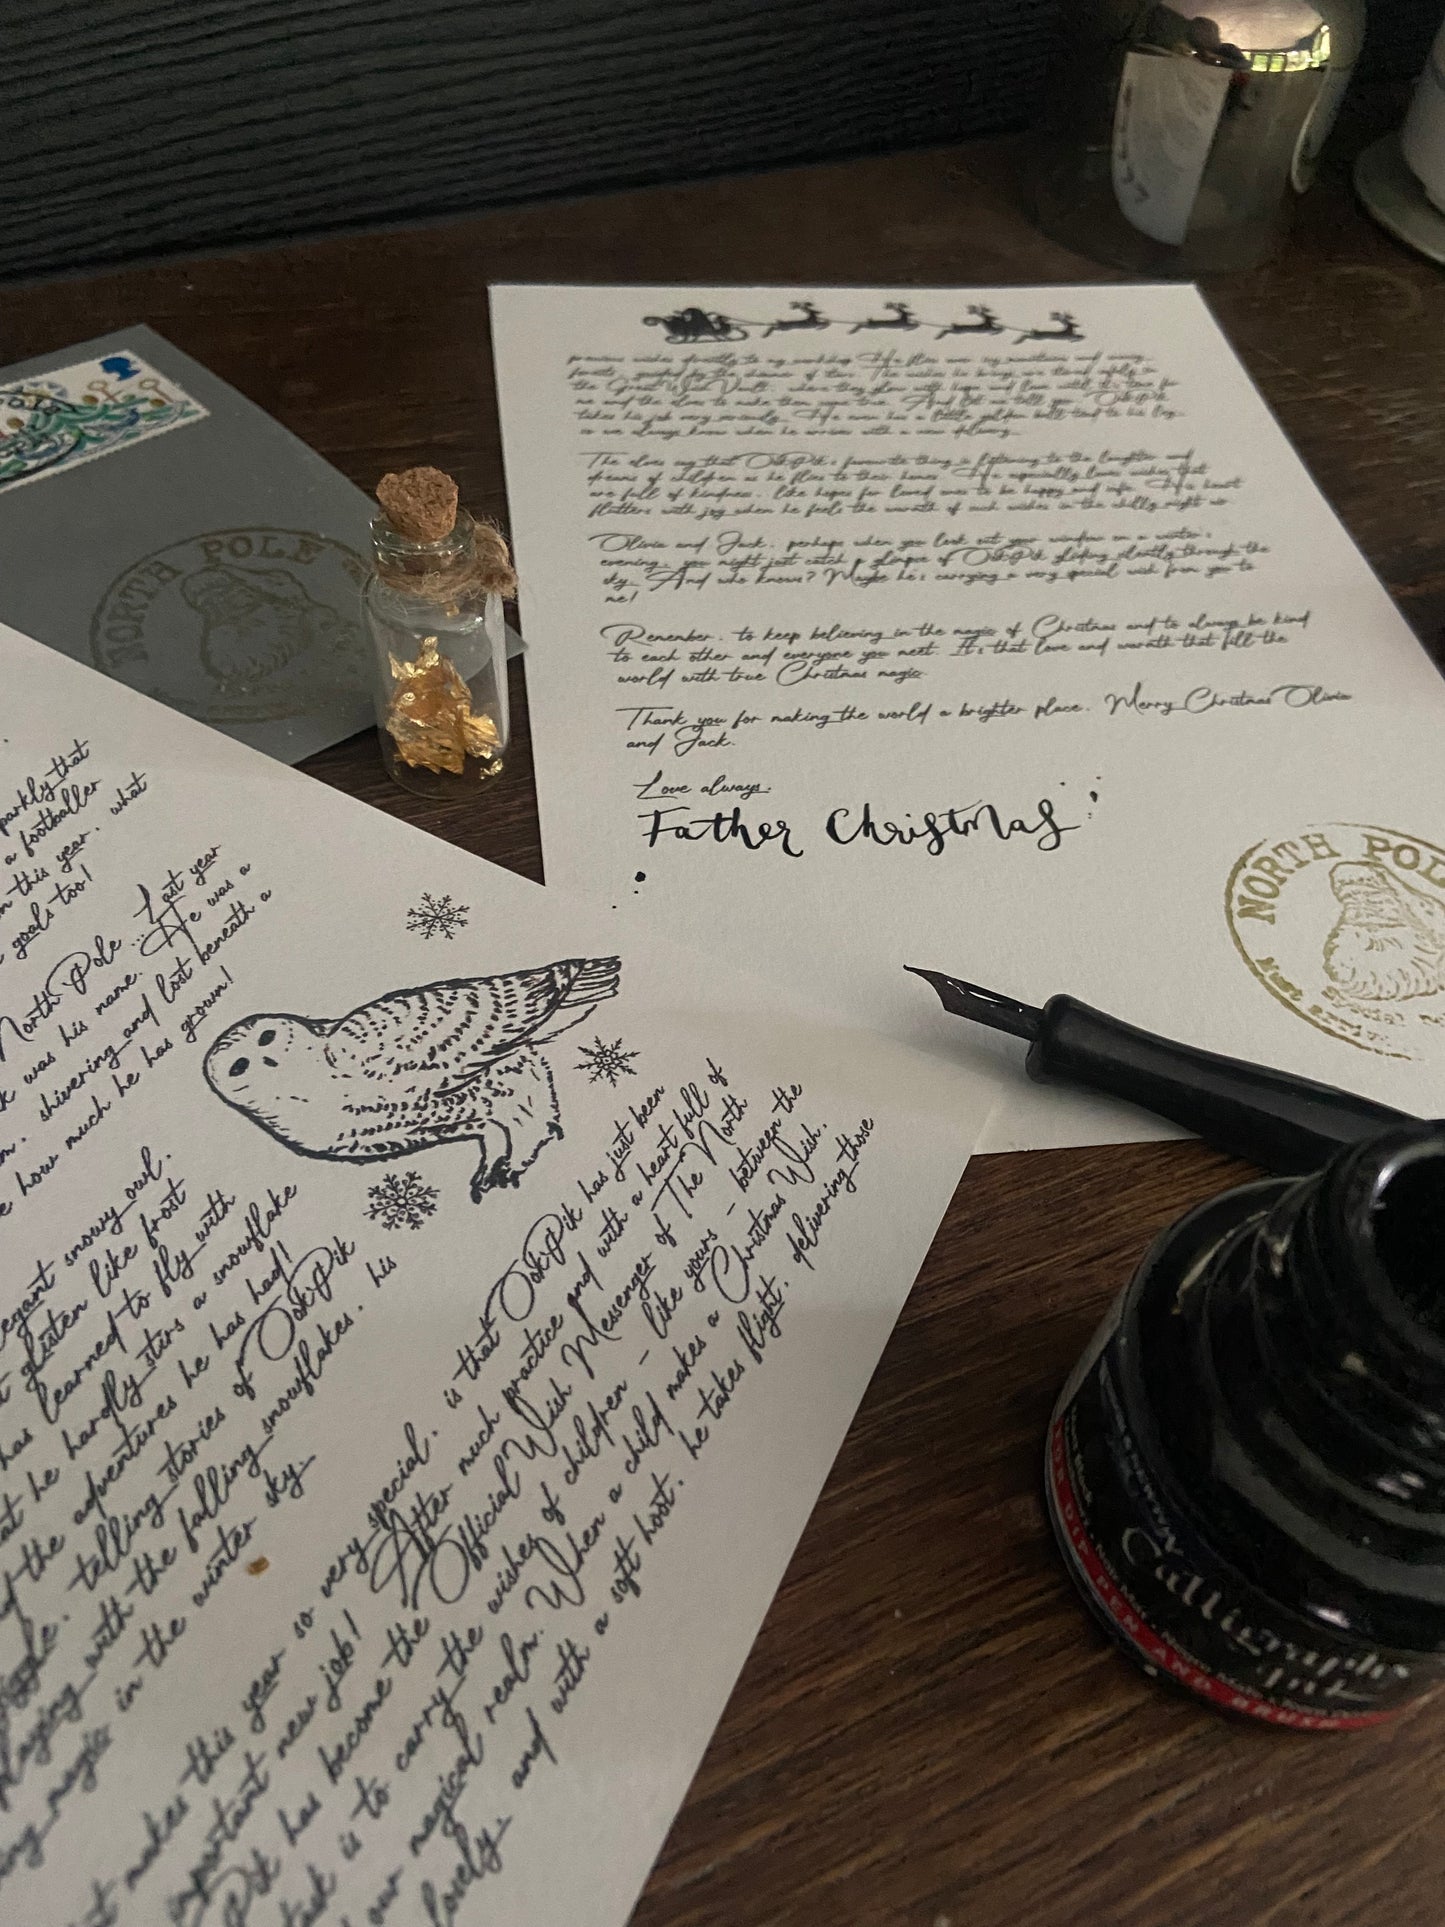 NORTH POLE
parkly that
a footballer
this year. what
goals too!
North Pole ... Last year
was his name. He was a
shivering and lost beneath a
how much he has grown!
elegant snowy owl.
glisten like frost
has learned to fly with
he hardly stirs a snowflake
the adventures he has had!
telling stories of OokPik
playing with the falling snowflakes. his
magic in the winter sky.
makes this year so very special. is that OokPik has just been
important new job! After much practice and with a heart full of
Pik has become the Official Wish Messenger of The North
task is to carry the wishes of children - like yours - between the
our magical realm. When a child makes a Christmas Wish.
lovely. and with a soft hoot. he takes flight. delivering those
precious wishes directly to my workshop. He flies over icy mountains and
forests. guided by the shimmer of stars. The wishes he brings are stored safely in
the Great Wish Vault. where they glow with hope and love until it's time for
me and the elves to make them come true. And let me tell you. OokPik
takes his job very seriously. He even has a little golden bell tied to his leg
so we always know when he arrives with a new delivery.
The elves say that OokPik's favourite thing is listening to the laughter and
dreams of children as he flies to their homes. He especially loves wishes that
are full of kindness. like hopes for loved ones to be happy and safe. His heart
flutters with joy when he feels the warmth of such wishes in the chilly night air
Olivia and Jack. perhaps when you look out your window on a winter's
evening. you might just catch a glimpse of OokPik gliding silently through the
sky. And who knows? Maybe he's carrying a very special wish from you to
me!
Remember. to keep believing in the magic of Christmas and to always be kind
to each other and everyone you meet. It's that love and warmth that fill the
world with true Christmas magic.
Thank you for making the world a brighter place. Merry Christmas Olivia
and Jack.
Love always.
Father Christmas
NORTH POLE
Calligraphy
Ink
FOR DIP PEN AND BRUSH